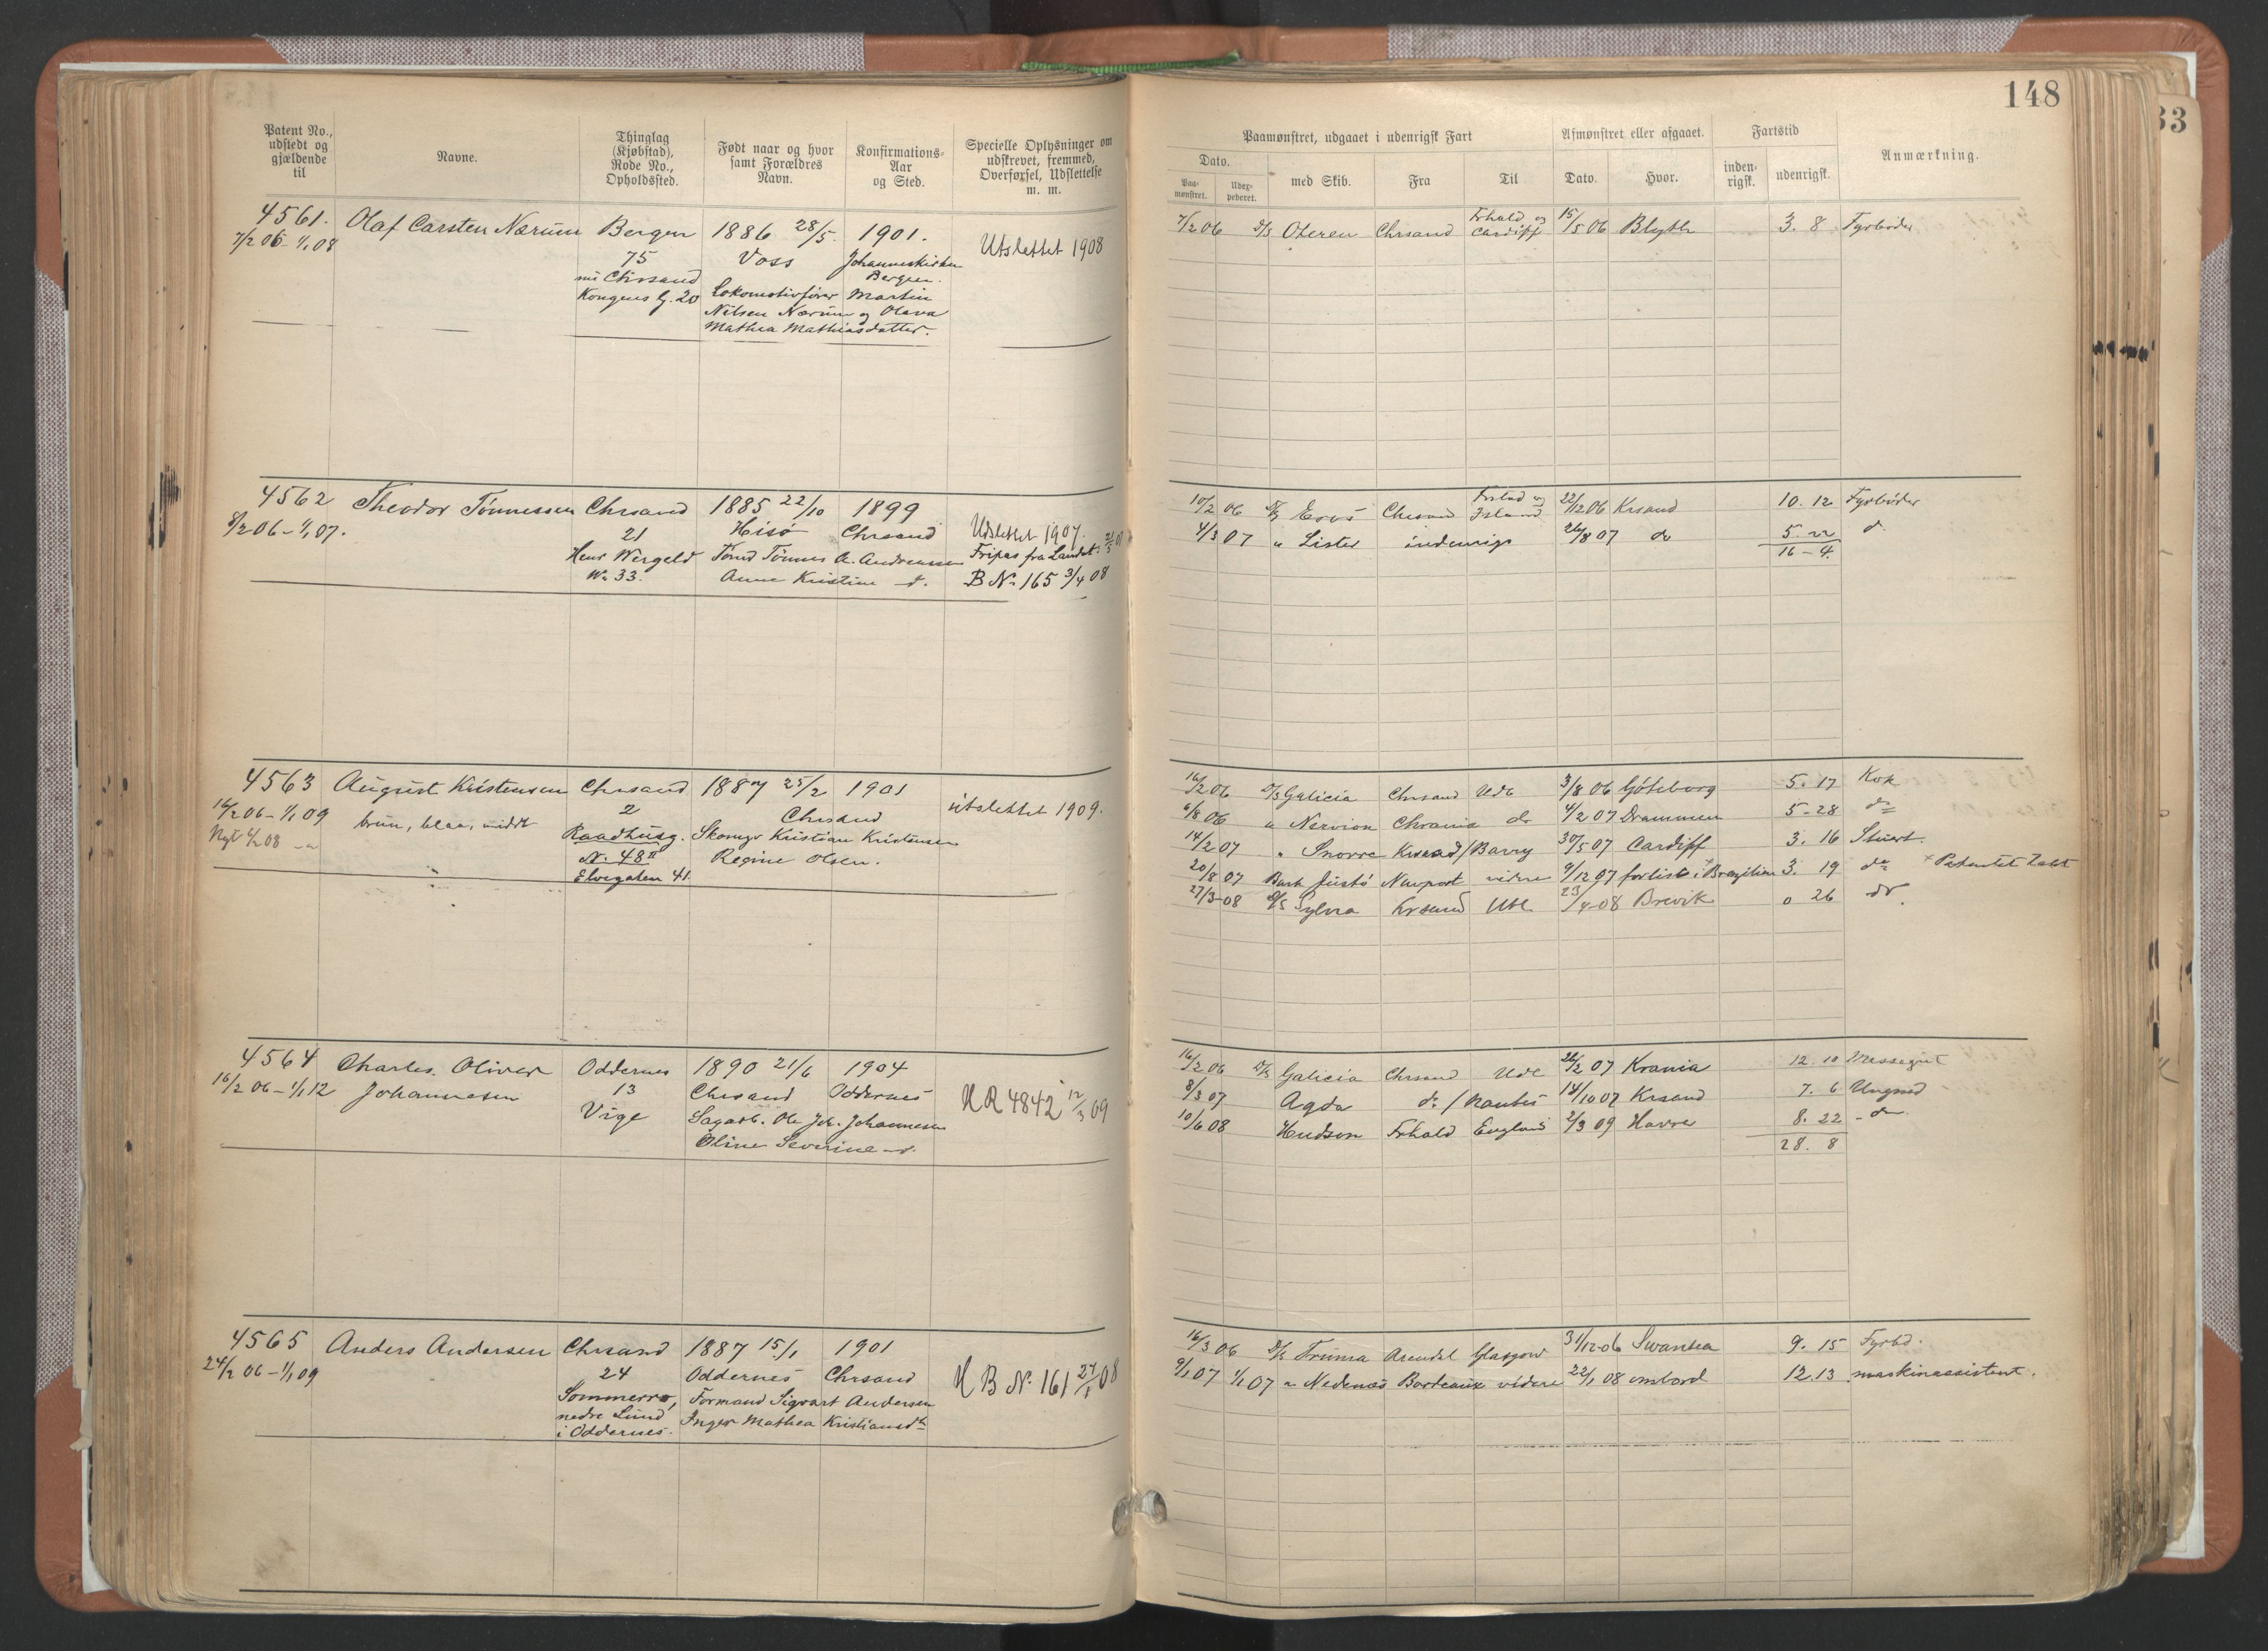 148
33
Patent No., udstedt og gjældende til
Navne.
Thinglag (Kjøbstad), Rode No., Opholdssted.
Født naar og hvor samt Forældres Navn.
Konfirmations-Aar og Sted.
Specielle Oplysninger om udskrevet, fremmed, Overførsel, Udslettelse m. m.
Paamønstret, udgaaet i udenrigsk Fart
Afmønstret eller afgaaet.
Fartstid
Anmærkning.
Dato.
Paa-mønstret.
Udex-pederet.
med Skib.
Fra
Til
Dato.
Hvor.
inden-rigsk.
udenrigsk.
4561. Olaf Carsten Nærum Bergen 1886 28/5. 1901.
7/2 06 - 1/1 08 75 Voss Johanneskirken Utslettet 1908
nu Chrsand Bergen.
Kongens G. 20 Lokomotivfører Martin
Nilsen Nærum og Olava
Mathea Mathiasdatter.
7/2 06 D/S Oteren Chrsand Frhald og Cardiff 15/5 06 Blyth 3. 8 Fyrbøder
4562 Theodor Tønnessen Chrsand 1885 22/10 1899
8/2 06 - 1/1 07. 21 Hisø Chrsand Udslettet 1907.
Henr Wergeld Tønnes A. Andreassen Fripas fra Landet
No 33. Anne Kristine d. B No 165 3/4 08
10/2 06 Chrsand 22/12 06 Krsand 10. 12 Fyrbøder
4/3 07 " Lister indenrigs 26/8 07 do 5. 22 d.
16 - 4.
4563 August Kristensen Chrsand 1887 25/2 1901
16/2 06 - 1/1 09 brun, blaa, middt 2 Chrsand utslettet 1909.
Nyt Raadhusg. Skomgr Kristian Kristensen
No. 48 II Regine Olsen.
Elvegaten 41.
16/2 06 D/S Galicia Chrsand Udl 3/8 06 Göteborg 5. 17 Kok
6/8 06 " Nervion Chrania do 4/2 07 Drammen 5 - 28 do
14/2 07 " Snorre Krsand / Barry 30/5 07 Cardiff 3. 16 Stuert.
20/8 07 Bark Justó Newport videre 9/12 07 forlist i Brazilien 3. 19 do + Patentet tabt
27/3 - 08 D/S Sylvia Krsand Utl 23/4 - 08 Brevik 0 26 do.
4564 Charles Oliver Oddernes 1890 21/6 1904
16/2 06 - 1/1 12 Johannesen 13 Chrsand Oddernes
Vige Sagarb. Ole Joh. Johannesen H R 4842 12/3 09
Oline Severine d.
16/2 06 D/S Galicia Chrsand Udl 26/2 07 Krania 12. 10 Messegut
8/3 07 Agda do / Nantes 14/10 07 Krsand 7. 6 Ungmd
10/6 08 Hudson Frhald England 2/3 09 Havre 8. 22 - do
28. 8
4565 Anders Andersen Chrsand 1887 15/1 1901
24/2 06 - 1/1 09 24 Oddernes Chrsand
Sommerro, Formand Sigvart Andersen H B No. 161 27/1 08
nedre Lund Inger Mathea Kristiansdt
i Oddernes.
16/3 06 D/S Truma Arendal Glasgow 31/12 - 06 Swansea 9. 15 Fyrbd.
9/1 07 1/1 07 " Nedenæs Bordeaux videre 22/1 08 ombord 12. 13 maskinassistent.